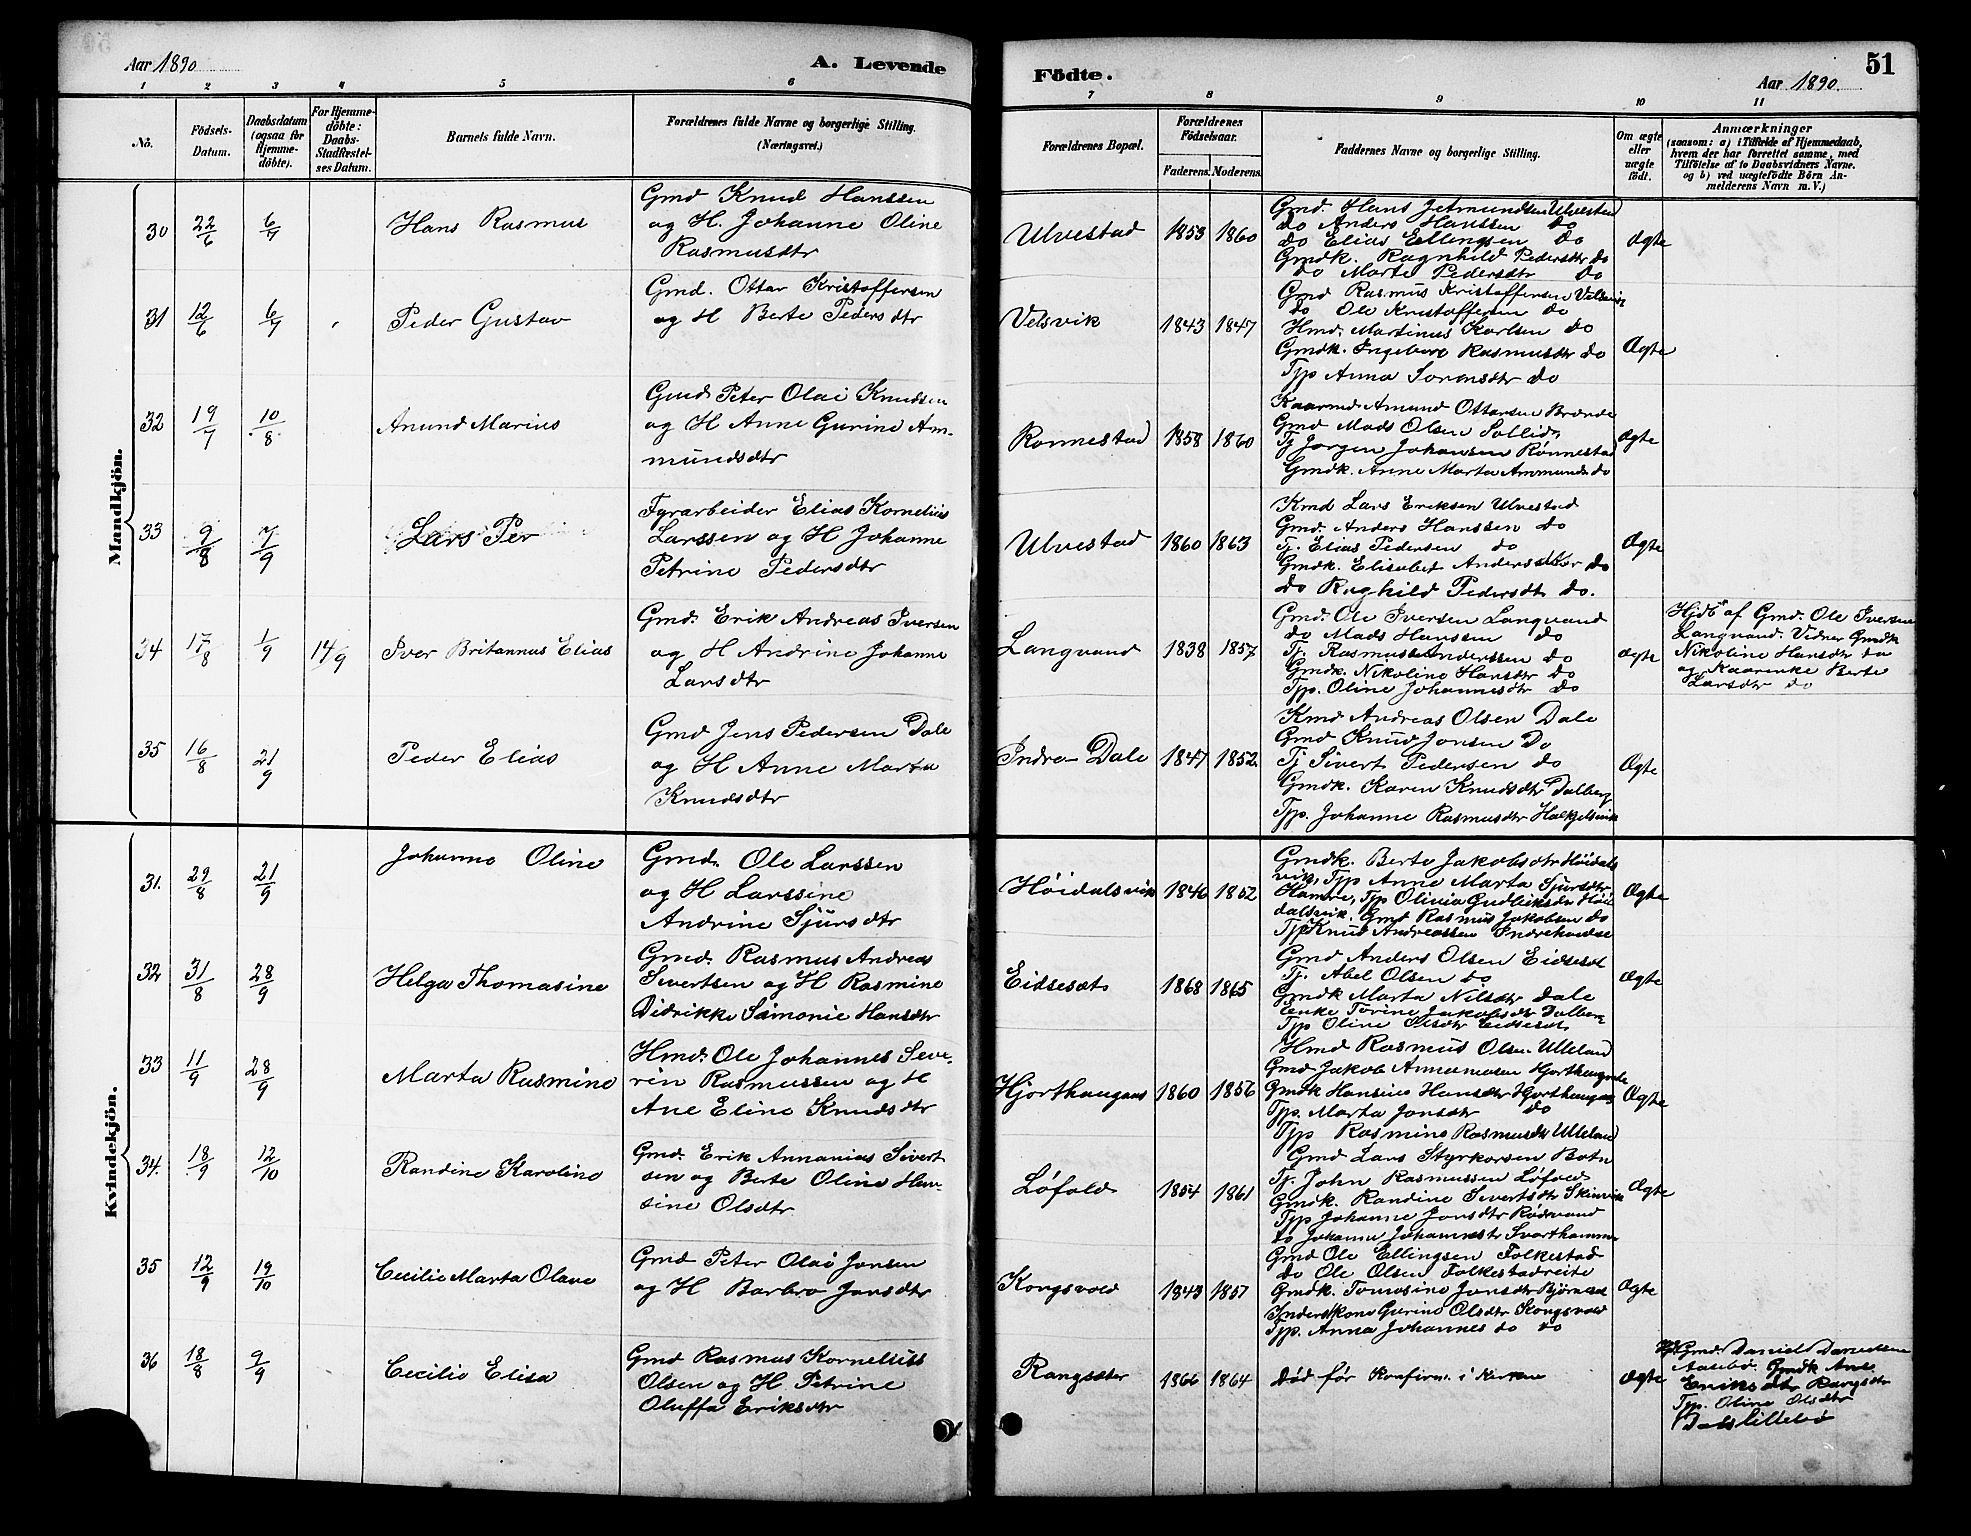 Aar 1890
A. Levende
Födte.
51
Aar 1890.
1 2 3 4 5 6 7 8 9 10 11
No.
Födsels-
Datum.
Daabsdatum
(ogsaa for
Hjemme-
döbte).
For Hjemme-
döbte:
Daabs-
Stadfæstel-
ses Datum.
Barnets fulde Navn.
Forældrenes fulde Navne og borgerlige Stilling.
(Næringsvei.)
Forældrenes Bopæl.
Forældrenes
Födselsaar.
Faderens. Moderens.
Faddernes Navne og borgerlige Stilling.
Om ægte
eller
uægte
födt.
Anmærkninger
(saasom: a) i Tilfælde af Hjemmedaab,
hvem der har forrettet samme, med
Tilföielse af to Daabsvidners Navne.
og b) ved uægtefödte Börn An-
melderens Navn m. V.)
Mandkjön.
30 22/6 6/7 Hans Rasmus
Gmd Knud Hanssen
og H. Johanne Oline
Rasmusdtr
Ulvestad 1853 1860
Gmd. Hans Jetmundsen Ulvestad
do Anders Hanssen do
do Elias Ellingsen do
Gmdk. Ragnhild Pedersdtr do
do Marte Pedersdtr do
ægte
31 12/6 6/7 Peder Gustav
Gmd. Ottar Kristoffersen
og H Berte Pedersdtr
Velsvik 1843 1847
Gmd Rasmus Kristoffersen Velsvik
do Ole Kristoffersen do
Hmd. Martinus Karlsen do
Gmdk. Ingeborg Rasmusdtr do
Tjp Anna Sorensdtr do
Ægte
32 19/7 10/8 Amund Marius
Gmd Peter Olai Knudsen
og H Anne Gurine Am-
mundsdtr
Ronnestad 1858 1860
Kaarmd. Amund Ottarsen Brende
Gmd Mads Olsen Sollid
Tj Jorgen Johansen Rönnestad
Gmdk. Anne Marta Ammunds do
Ægte
33 9/8 7/9 Lars Per
Fyrarbeider Elias Kornelius
Larssen og H Johanne
Petrine Pedersdtr
Ulvestad 1860 1863
Kmd Lars Eriksen Ulvestad
Gmd. Anders Hanssen do
Tj. Elias Pedersen do
Gmdk. Elisabet Andersdtr do
do Raghild Pedersdtr do.
Ægte
34 17/8 1/9 14/9 Iver Britannus Elias
Gmd. Erik Andreas Iversen
og H Andrine Johanne
Larsdtr
Langvand 1838 1857
Gmd. Ole Iversen Langvand
do Mads Hanssen do
Tj. Rasmus Anderssen do
Gmdk. Nikoline Hansdtr do
Tjp. Oline Johannesdtr do
ægte
Hjdb af Gmd. Ole Iversen
Langvand. Vidner Gmdk
Nikoline Hansdtr do
og Kaarenke Berte
Larsdtr do
35 16/8 21/9 Peder Elias
Gmd Jens Pedersen Dale
og H Anne Marta
Knudsdtr
Indre-Dale 1847 1852.
Kmd Andreas Olsen Dale
Gmd Knud Jonsen Do
Tj Sivert Pedersen do
Gmdk. Karen Knudsdtr Dalberg
Tjp. Johanne Rasmusdtr Halkjelsvik
Ægte
Kvindekjön.
31. 29/8 21/9 Johanne Oline
Gmd. Ole Larssen
og H Larssine
Andrine Sjursdtr
Höidalsvik 1846 1852
Gmdk. Berte Jakobsdtr Höidals
vik, Tjp Anne Marta Sjursdtr
Hamre, Tjp Olivia Gudleiksdtr Höi
dalsvik. Gmd Rasmus Jakobsen do
Tj Knud Andreassen
Ægte
32 31/8 28/9 Helga Thomasine
Gmd. Rasmus Andreas
Sivertsen og H Rasmine
Didrikke Simonie Hansdtr
Eidsesæt 1868 1865
Gmd Anders Olsen Eidsesæt
Tj. Abel Olsen do
Gmdk Marta Nilsdtr Dale
Enke Torine Jakobsdtr Dalberg
Tjp Oline Olsdtr Eidsesæt
Ægte
33 11/9 28/9 Marta Rasmine
Hmd. Ole Johannes Seve-
rin Rasmussen og H
Ane Eline Knudsdtr
Hjorthaugans 1860 1856
Hmd Rasmus Olsen Ulleland
Gmd Jakob
Gmdk Hansine Hansdtr Hjorthaugans
Tjp. Marta Jonsdtr do
Tjp Rasmine Rasmusdtr Ulleland
Ægte
34. 18/9 12/10 Randine Karoline
Gmd. Erik Annanias Sivert
sen og Berte Oline Han-
sine Olsdtr
Löfold 1854 1861
Gmd Lars Styrkorsen Botn
Tj. John Rasmussen Löfold
Gmdk. Randine Sivertsdtr Skinvik
Tjp Johanne Jonsdtr Rödvand
do Johanne Johannesdtr
Ægte
35 12/9 19/10 Cecilie Marta Olave
Gmd Peter Olai Jonsen
og H Barbro Jonsdtr
Kongsvold 1843 1857
Gmd Ole Ellingsen Folkestad
do Ole Olsen Folkestadreite
Gmdk. Tomasine Jonsdtr
Inderskone Gurine Olsdtr Kongsvold
Tjp. Anna Johannes do do
Ægte
36 18/8 9/9 Cecilie Elisa
Gmd Rasmus Kornelius
Olsen og H. Petrine
Oluffa Eriksdtr
Rangsæter 1866 1864
Död för Konfirm. i Kirken
Ægte
Gmd Daniel Danielsen
Aasebö. Gmdk Ane
Eriksdtr Rangsdtr
Tjp. Oline Olsdtr
Lillebö